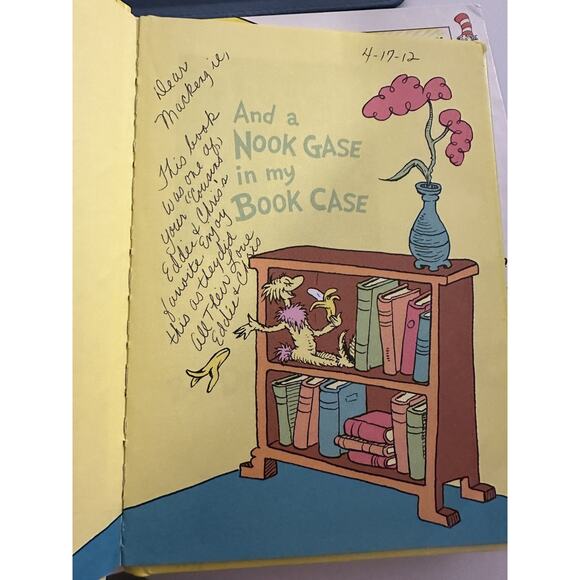 Dear
Mackenzie,
4-17-12
This book
was one of
your Cousins
Eddie & Chris's
favorite Enjoy
this as they did
All Their Love
Eddie & Chris
And a
NOOK GASE
in my
BOOK CASE